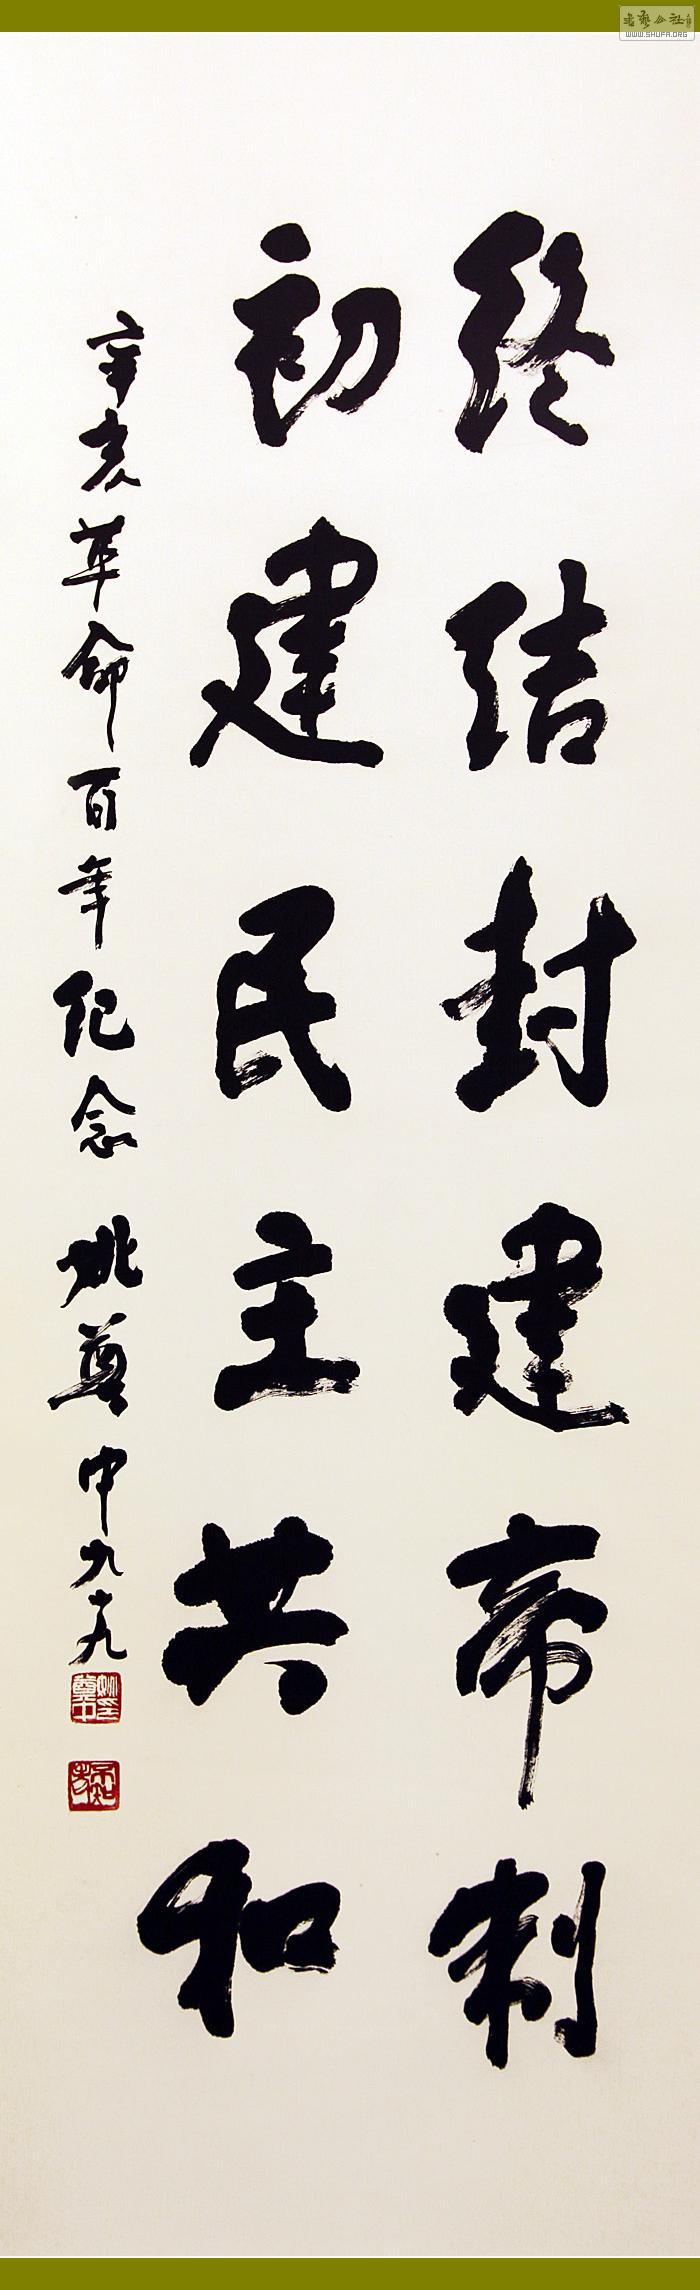 终结封建帝制
初建民主共和
辛亥革命百年纪念 姚奠中九十九
姚奠中印
不知老
书艺公社
WWW.SHUFA.ORG